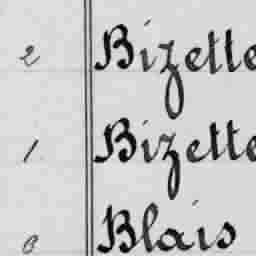 2 Bizette
1 Bizette
0 Blais